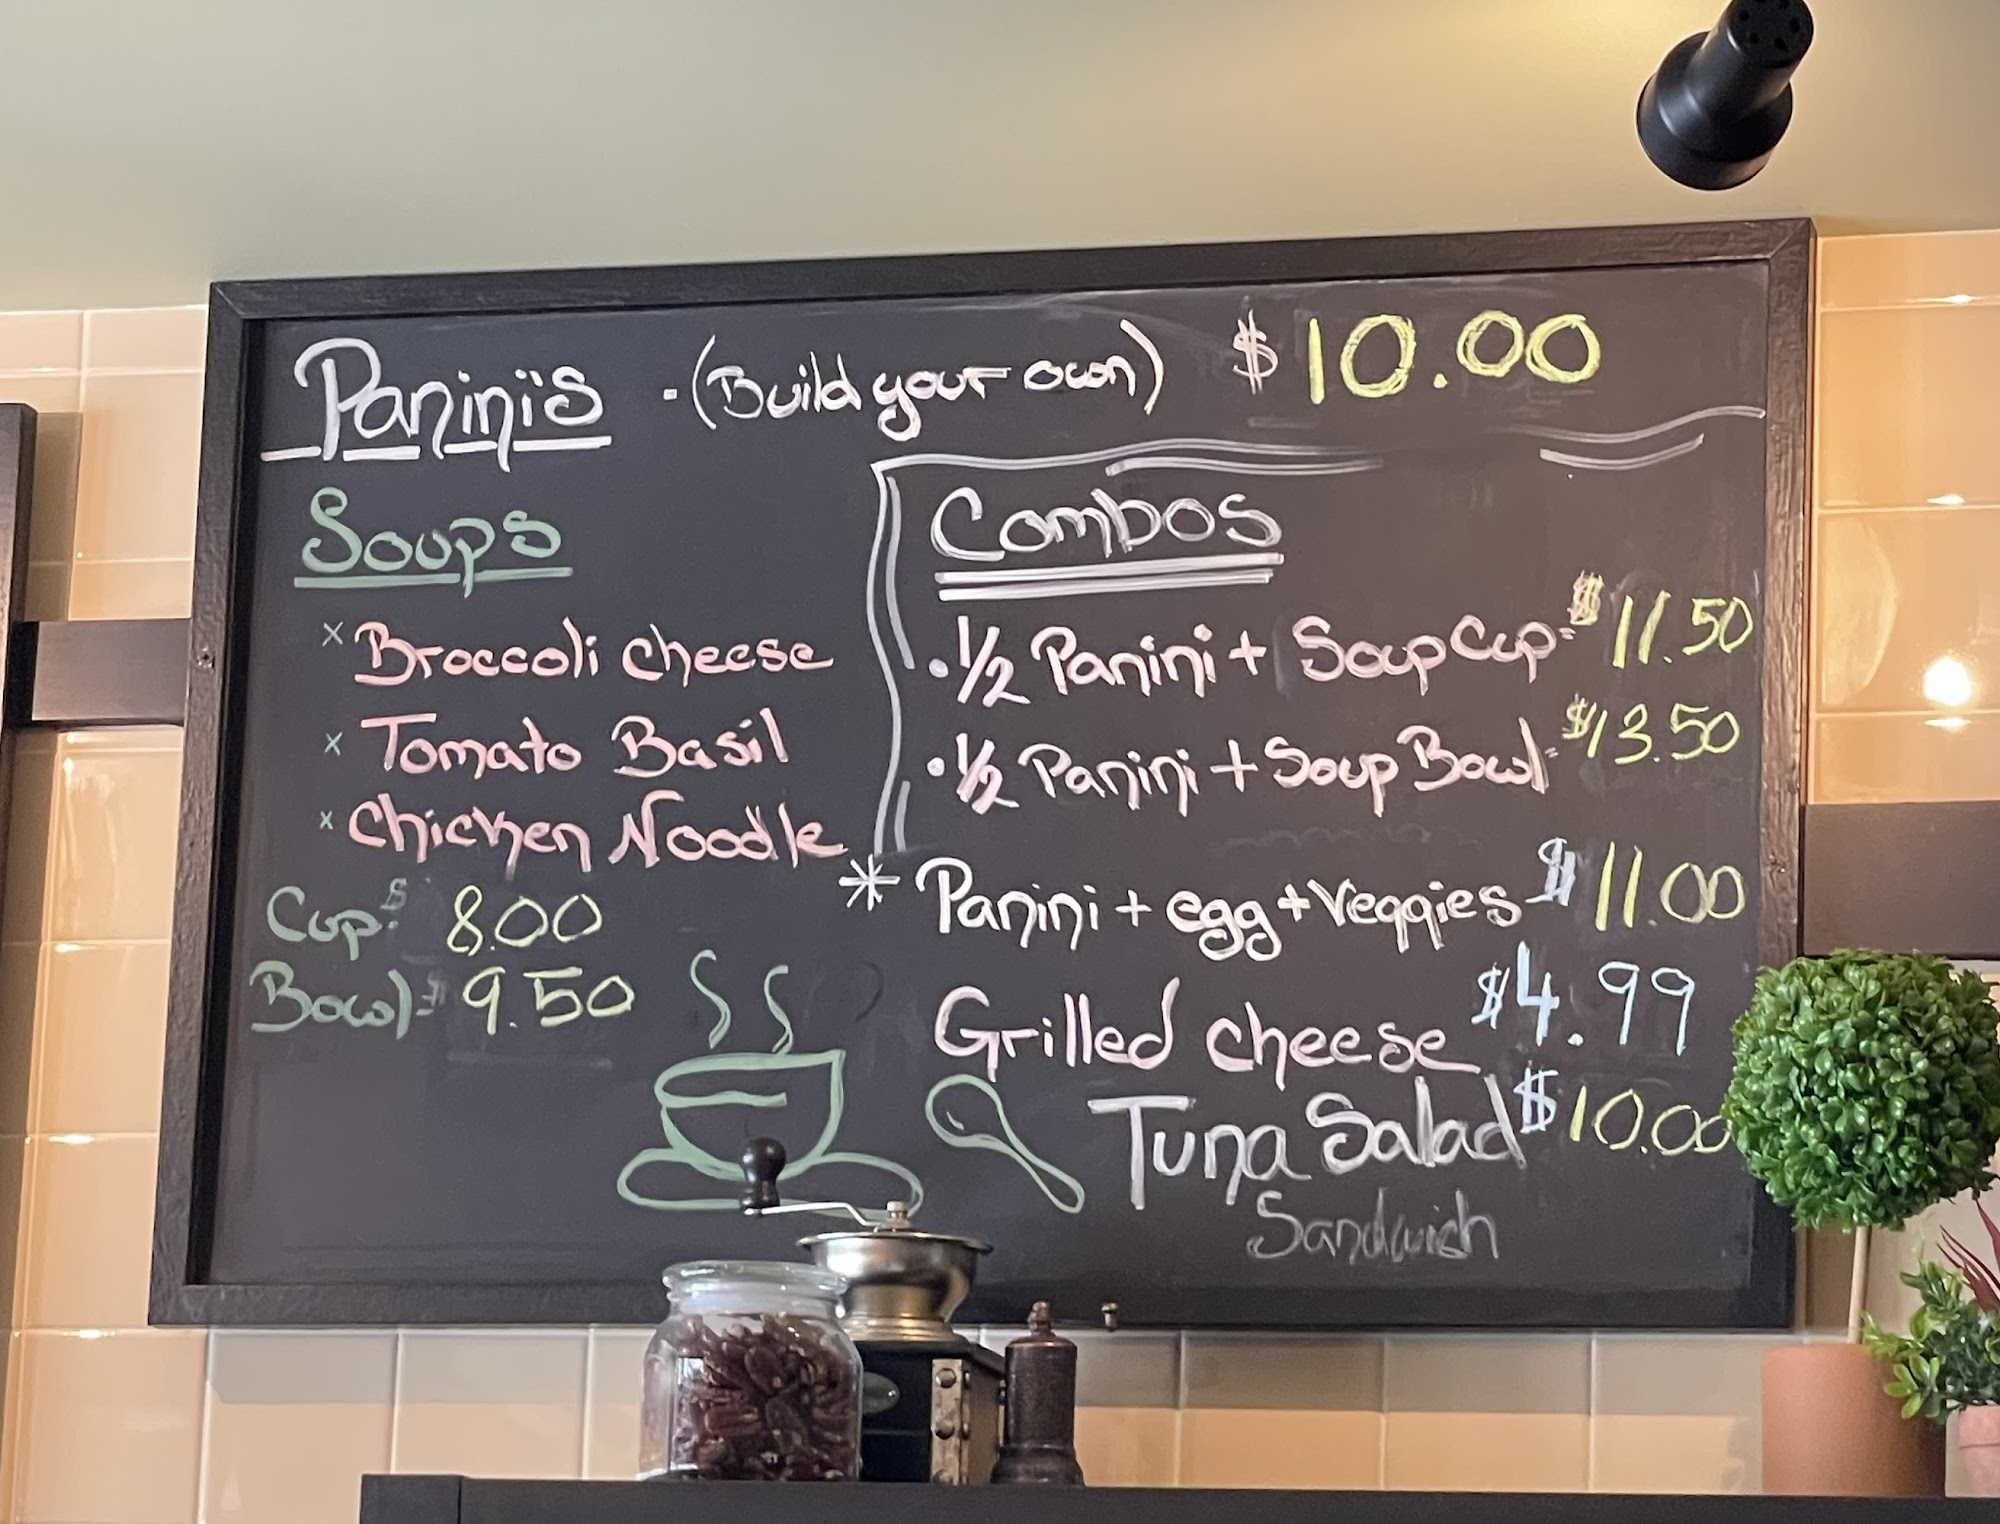 Panini's • (Build your own) $10.00
Soups
x Broccoli cheese
x Tomato Basil
x Chicken Noodle
Cup: $ 8.00
Bowl= $ 9.50
Combos
• 1/2 Panini + Soup Cup = $11.50
• 1/2 Panini + Soup Bowl = $13.50
* Panini + egg + Veggies $11.00
Grilled cheese $4.99
Tuna Salad $10.00
Sandwich